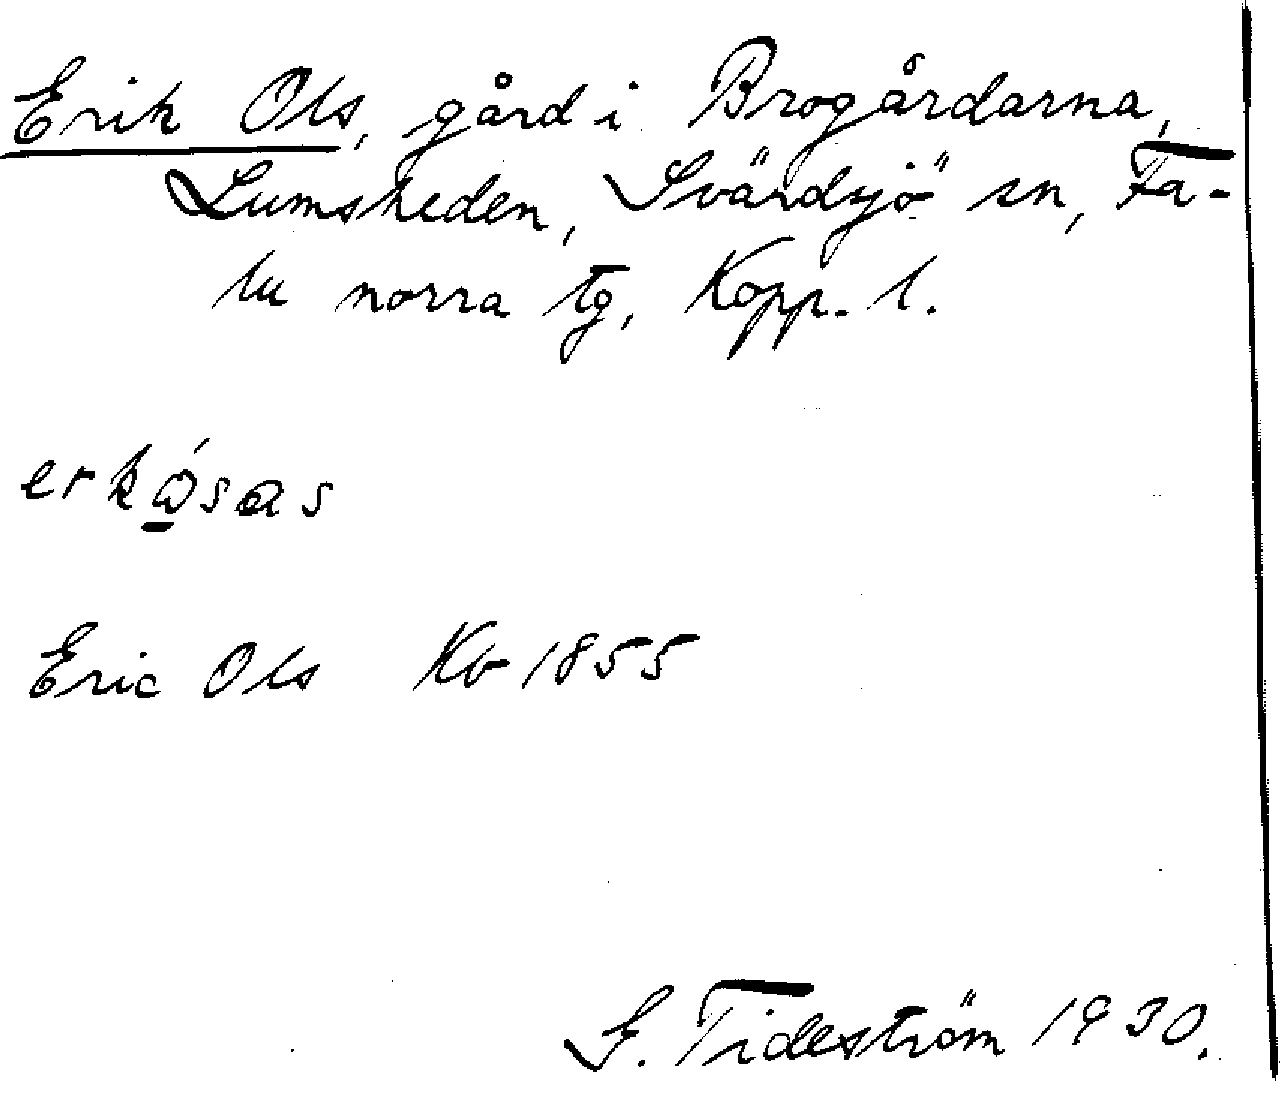 Erik Ols, gård i Brogårdarna,
Lumsheden, Svärdsjö sn, Fa-
lu norra tg, Kopp. l.
Eric Ols Kb 1855
G. Tideström 1930.